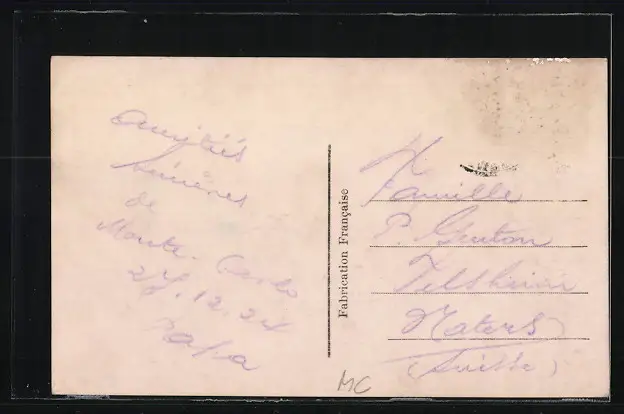 Amitiés
sincères
de
Monte-Carlo
27.12.24
Papa
Fabrication Française
Famille
P.
Naters
(Suisse)
MC